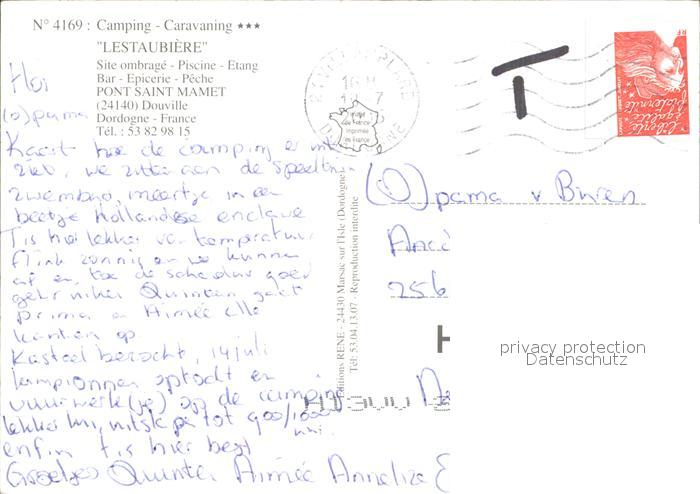 N° 4169 : Camping - Caravaning ★★★
"LESTAUBIÈRE"
Site ombragé - Piscine - Etang
Bar - Epicerie - Pêche
PONT SAINT MAMET
(24140) Douville
Dordogne - France
Tél. : 53 82 98 15
Hoi
(o)pama
Kaart hoe de camping er uit
ziet, we zitten aan de speeltuin
zwembad, meertje in een
beetje Hollandse enclave
Tis hier lekker van temperatuur
flink zonnig en we kunnen
af en toe de schaduw goed
gebruiken Quinten gaat
prima en Aimée alle
kanten op
Kasteel bezocht, 14 juli
lampionnen optocht en
vuurwerk(je) op de camping
lekker hui, uitslapen tot 900/1000
uur.
enfin tis hier best
Groetjes Quinten Aimée Annelize
Editions RENE - 24430 Marsac sur l'Isle (Dordogne)
Tél: 53.04.13.07 - Reproduction interdite
Image de France
imprimée en France
T
RF
Liberté
égalité
fraternité
(O)pama v Buren
256
privacy protection
Datenschutz